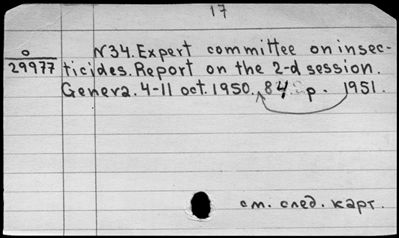 17
o N34. Expert committee on insec-
29977 ticides. Report on the 2-d session.
Geneva. 4-11 oct. 1950. 84 p. 1951.
см. след. карт.